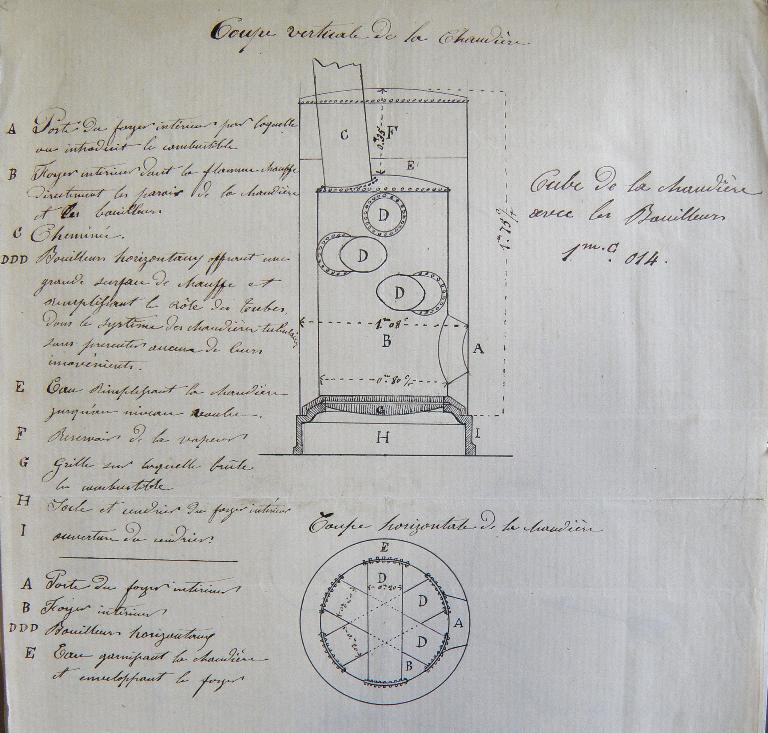 Coupe verticale de la Chaudière
A Porte du foyer intérieur par laquelle
on introduit le combustible
B Foyer intérieur dont la flamme chauffe
directement les parois de la chaudière
et les bouilleurs
C Cheminée.
DDD Bouilleurs horizontaux offrant une
grande surface de chauffe et
remplissant le rôle des tubes
dans le système des chaudières tubulaires
sans presenter aucun de leurs
inconvénients.
E Eau remplissant la chaudière
jusqu'au niveau voulu.
F Reservoir de la vapeur
G Grille sur laquelle brûle
le combustible
H Socle et cendrier du foyer intérieur
I ouverture du cendrier
A Porte du foyer intérieur
B Foyer intérieur
DDD Bouilleurs horizontaux
E Eau garnissant la chaudière
et enveloppant le foyer
C
F
E
D
D
D
1m 08c
B
A
0m 80c
G
H
I
1m 75c
Cube de la chaudière
avec les Bouilleurs
1m.c. 014.
Coupe horizontale de la chaudière
E
D
D
A
D
B